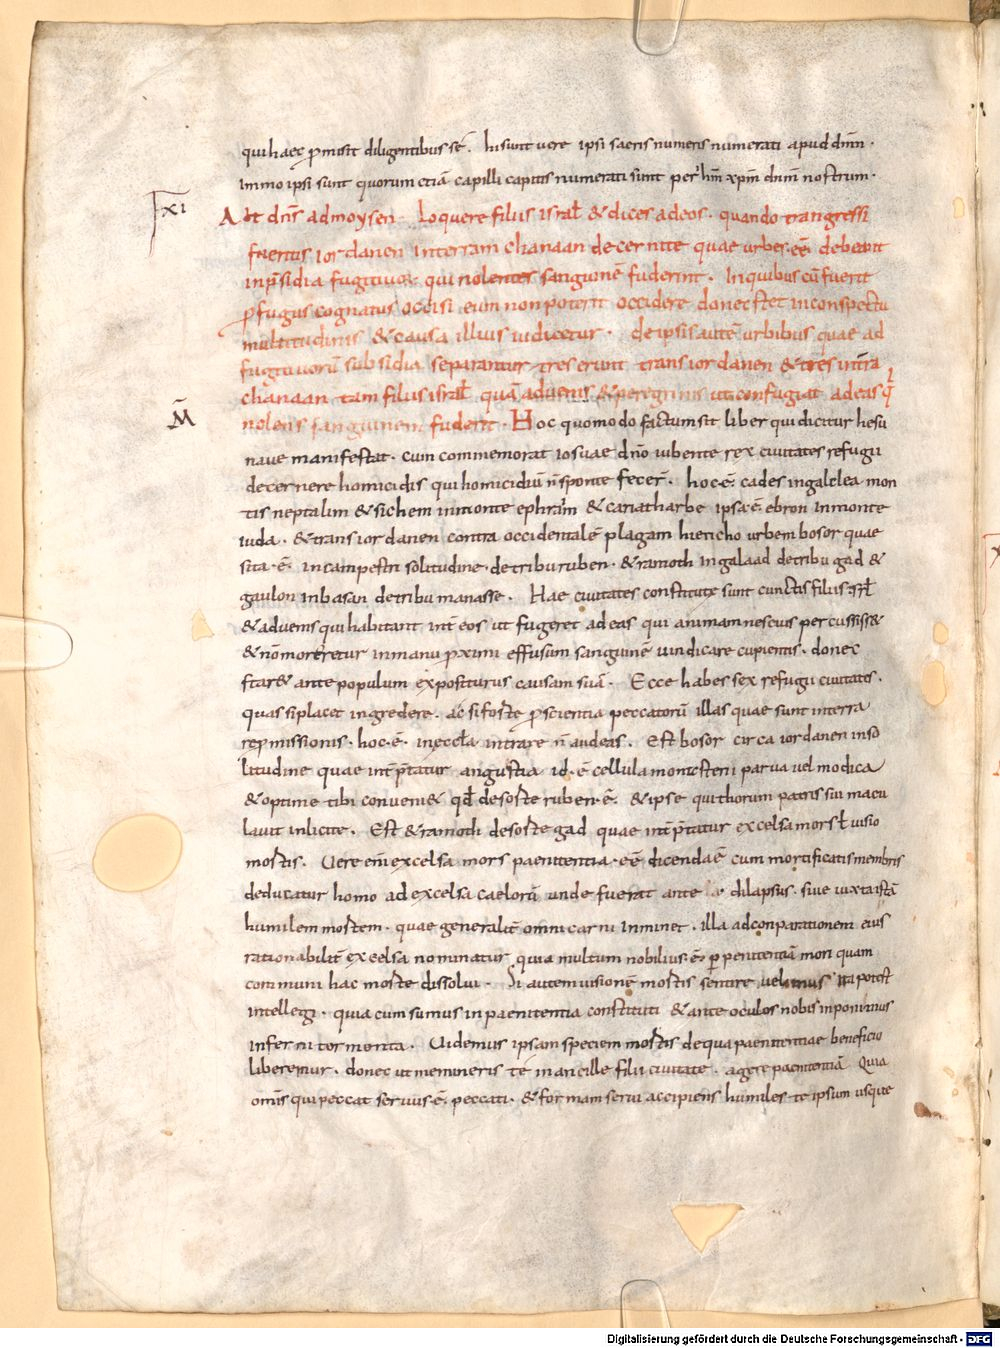 qui haec p̄misit diligentibus sē. hi sunt vere ipsi sacris numeris numerati apud dn̄m.
immo ipsi sunt quorum etiā capilli capitis numerati sunt per ih̄m xp̄m dn̄m nostrum.
XI
Ait dn̄s ad moysen. Loquere filiis israł & dices ad eos. quando trangressi
fueritis iordanen in terram chanaan decernite quae urbes eē debeant
in p̄sidia fugitivorum qui nolentes sanguinē fuderint. In quibus cū fuerit
p̄fugus cognatus occisi eum non poterit occidere donec stet in conspectu
multitudinis & causa illius iudicetur. de ipsis autē urbibus quae ad
fugitivorū subsidia separantur tres erunt trans iordanen & tres in t̄ra
chanaan tam filiis israł quā advenis & peregrinis ut confugiat ad eas q̄
M̄
nolens sanguinem fuderit. Hoc quomodo factum sit liber qui dicitur hiesu
nave manifestat. cum commemorat iosuae dn̄o iubente sex civitates refugii
decernere homicidis qui homicidiū n̄ sponte fecer̄. hoc ē. cades in galilea mon
tis neptalim & sichem in monte ephraim & cariatharbe ipsa ē ebron in monte
iuda. & trans iordanen contra occidentalē plagam hiericho urbem bosor quae
sita ē. in campestri solitudine. de tribu ruben. & ramoth in galaad de tribu gad &
gaulon in basan de tribu manasse. Hae civitates constitutae sunt cunctis filiis isrł
& advenis qui habitant int̄ eos ut fugeret ad eas qui animam nescius percussiss&
& nō moreretur in manu p̄ximi effusum sanguinē vindicare cupientis. donec
star& ante populum expositurus causam suā. Ecce habes sex refugii civitates.
quas si placet ingredere. ac si forte p̄ scientia peccatorū illas quae sunt in terra
rep̄missionis. hoc ē. in eccl̄a intrare n̄ audeas. Est bosor circa iordanen in so
litudine quae int̄p̄tatur angustia id ē cellula monasterii parva vel modica
& optime tibi conveni& qd̄ de sorte ruben ē. & ipse qui thorum patris sui macu
lavit inlicite. Est & ramoth de sorte gad quae int̄p̄tatur excelsa mors ł visio
mortis. Vere eni excelsa mors paenitentia eē dicenda ē cum mortificatis membris
deducatur homo ad excelsa caelorū unde fuerat ante dilapsus. sive iuxta istā
humilem mortem. quae generalit̄ omni carni inminet. illa ad conparationem eius
rationabilit̄ excelsa nominatur quia multum nobilius ē p̄ penitentiā mori quam
communi hac morte dissolvi. Si autem visionē mortis sentire velimus ita potest
intellegi. quia cum sumus in paenitentia constituti & ante oculos nobis inponimus
inferni tormenta. Videmus ipsam speciem mortis de qua paenitentiae beneficio
liberemur. donec ut memineris te in ancille filii civitate. agere paenitentiā Quia
omnis qui peccat servus ē peccati. & formam servi accipiens humilies te ipsum usque
Digitalisierung gefördert durch die Deutsche Forschungsgemeinschaft - DFG